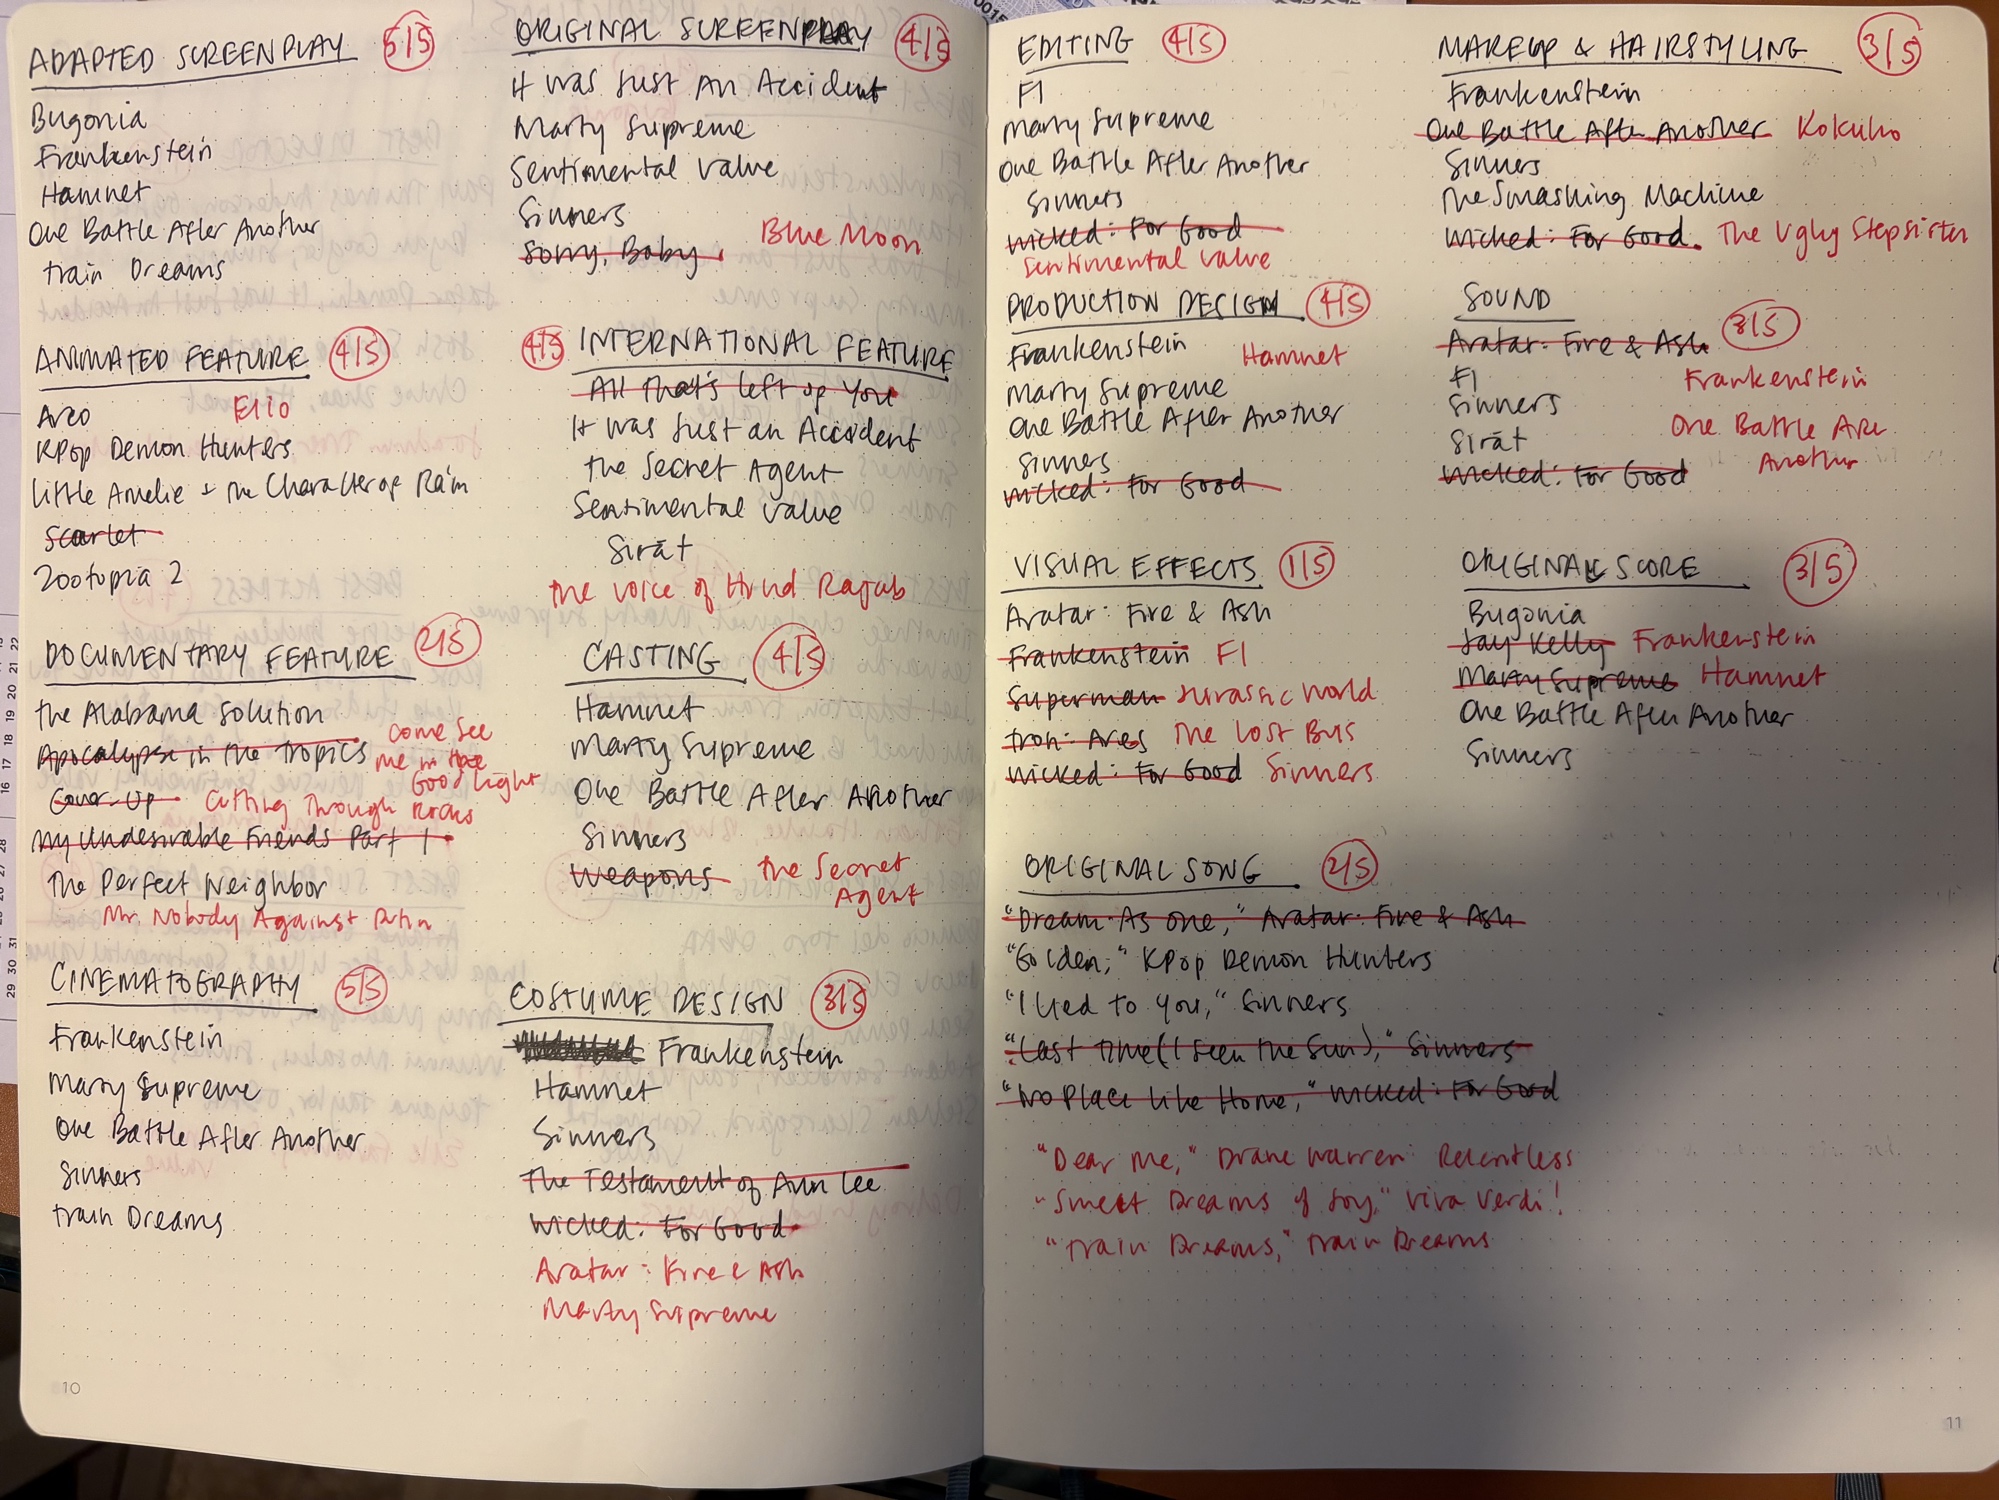 ADAPTED SCREENPLAY 5/5
Bugonia
Frankenstein
Hamnet
One Battle After Another
Train Dreams
ORIGINAL SCREENPLAY 4/5
It Was Just An Accident
Marty Supreme
Sentimental Value
Sinners
Sorry, Baby Blue Moon
ANIMATED FEATURE 4/5
Arco Elio
KPop Demon Hunters
Little Amelie + the Character of Rain
Scarlet
Zootopia 2
4/5 INTERNATIONAL FEATURE
All That's Left of You
It Was Just an Accident
The Secret Agent
Sentimental Value
Sirāt
The Voice of Hind Rajab
DOCUMENTARY FEATURE 2/5
The Alabama Solution
Apocalypse in the Tropics Come See
me in the
Good Light
Cover-Up Cutting Through Rocks
My Undesirable Friends Part 1
The Perfect Neighbor
Mr. Nobody Against Putin
CASTING 4/5
Hamnet
Marty Supreme
One Battle After Another
Sinners
Weapons The Secret
Agent
CINEMATOGRAPHY 5/5
Frankenstein
Marty Supreme
One Battle After Another
Sinners
Train Dreams
COSTUME DESIGN 3/5
Frankenstein
Hamnet
Sinners
The Testament of Ann Lee
Wicked: For Good
Avatar: Fire & Ash
Marty Supreme
10
EDITING 4/5
F1
Marty Supreme
One Battle After Another
Sinners
Wicked: For Good
Sentimental Value
MAKEUP & HAIRSTYLING 3/5
Frankenstein
One Battle After Another Kokuho
Sinners
The Smashing Machine
Wicked: For Good. The Ugly Stepsister
PRODUCTION DESIGN 4/5
Frankenstein Hamnet
Marty Supreme
One Battle After Another
Sinners
Wicked: For Good
SOUND 3/5
Avatar: Fire & Ash
F1 Frankenstein
Sinners
Sirāt One Battle After
Another
Wicked: For Good
VISUAL EFFECTS 1/5
Avatar: Fire & Ash
Frankenstein F1
Superman Jurassic World
Tron: Ares The Lost Bus
Wicked: For Good Sinners
ORIGINAL SCORE 3/5
Bugonia
Jay Kelly Frankenstein
Marty Supreme Hamnet
One Battle After Another
Sinners
ORIGINAL SONG 2/5
"Dream As One," Avatar: Fire & Ash
"Golden," KPop Demon Hunters
"I Lied to You," Sinners
"Last Time (I Seen the Sun)," Sinners
"No Place Like Home," Wicked: For Good
"Dear Me," Diane Warren: Relentless
"Sweet Dreams of Joy," Viva Verdi!
"Train Dreams," Train Dreams
11